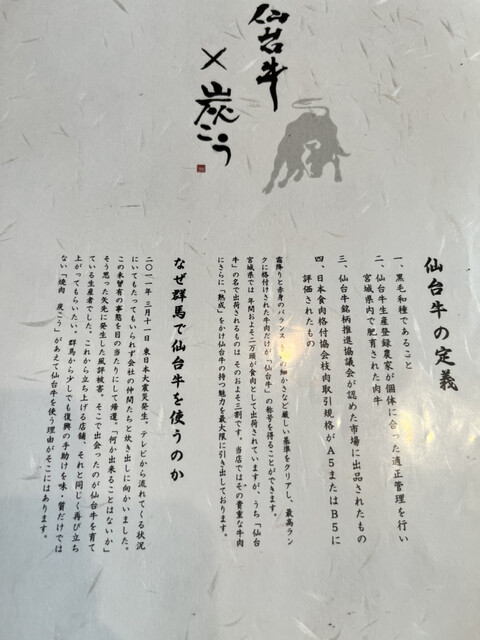 仙台牛
×
炭こう
仙台牛の定義
一、黒毛和種であること
二、仙台牛生産登録農家が個体に合った適正管理を行い
宮城県内で肥育された肉牛
三、仙台牛銘柄推進協議会が認めた市場に出品されたもの
四、日本食肉格付協会枝肉取引規格がA5またはB5に
評価されたもの
霜降りと赤身のバランス の細かさなど厳しい基準をクリアし、最高ラン
クに格付けされた牛肉だけが「仙台牛」の称号を得ることができます。
宮城県では、年間およそ二万頭が食肉として出荷されていますが、うち「仙台
牛」の名で出荷されるものは そのおよそ三割です。当店ではその貴重な牛肉
にさらに「熟成」をかけ仙台牛の持つ魅力を最大限に引き出しております。
なぜ群馬で仙台牛を使うのか
二〇一一年 三月十一日 東日本大震災発生。テレビから流れてくる状況
にいてもたってもいられず会社の仲間たちと炊き出しに向かいました。
この未曽有の事態を目の当たりにして帰還。「何か出来ることはないか」
そう思った矢先に発生した風評被害。そこで出会ったのが仙台牛を育て
ている生産者でした。これから立ち上げる店舗、それと同じく再び立ち
上がってもらいたい。群馬から少しでも復興の手助けを味・質だけでは
ない「焼肉 炭こう」があえて仙台牛を使う理由がそこにはあります。